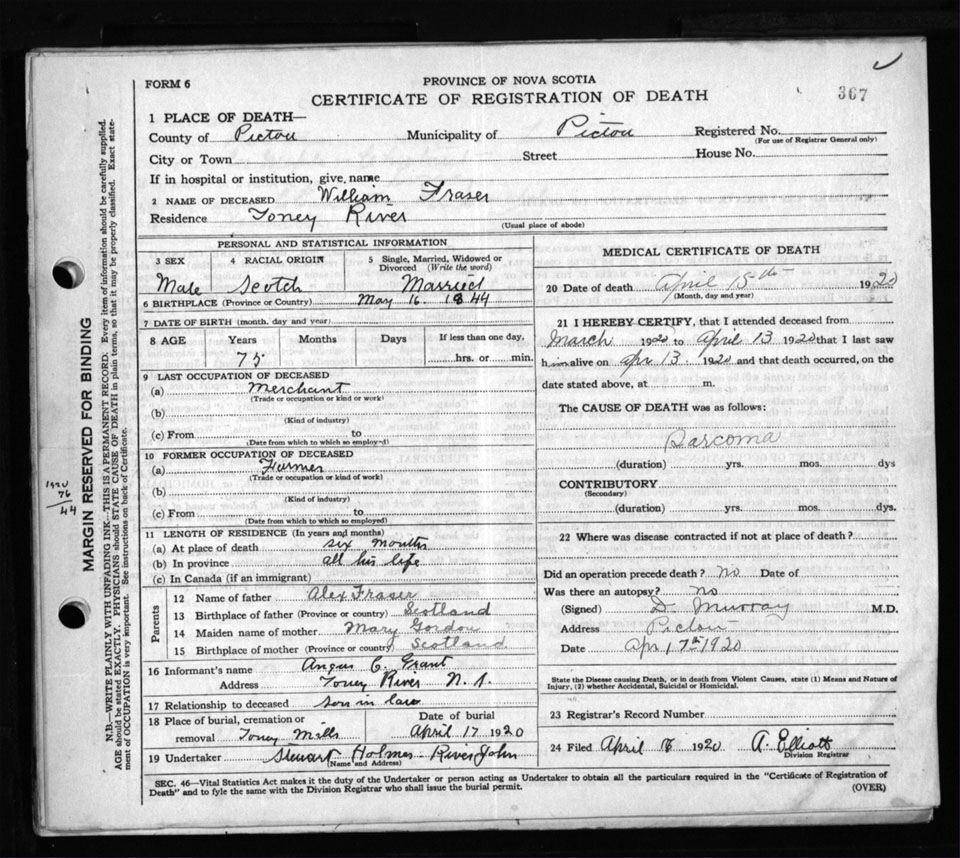 FORM 6
PROVINCE OF NOVA SCOTIA
CERTIFICATE OF REGISTRATION OF DEATH
367
1 PLACE OF DEATH—
County of Pictou Municipality of Pictou Registered No.
(For use of Registrar General only)
City or Town Street House No.
If in hospital or institution, give name
2 NAME OF DECEASED William Fraser
Residence Toney River
(Usual place of abode)
PERSONAL AND STATISTICAL INFORMATION
3 SEX 4 RACIAL ORIGIN 5 Single, Married, Widowed or Divorced (Write the word)
Male Scotch Married
6 BIRTHPLACE (Province or Country) May 16. 1844
7 DATE OF BIRTH (month, day and year)
8 AGE Years Months Days If less than one day,
75 hrs. or min.
9 LAST OCCUPATION OF DECEASED
(a) Merchant
(Trade or occupation or kind or work)
(b)
(Kind of industry)
(c) From to
(Date from which to which so employed)
10 FORMER OCCUPATION OF DECEASED
(a) Farmer
(Trade or occupation or kind of work)
(b)
(Kind of industry)
(c) From to
(Date from which to which so employed)
11 LENGTH OF RESIDENCE (In years and months)
(a) At place of death six months
(b) In province all his life
(c) In Canada (if an immigrant)
Parents
12 Name of father Alex Fraser
13 Birthplace of father (Province or country) Scotland
14 Maiden name of mother Mary Gordon
15 Birthplace of mother (Province or country) Scotland
16 Informant's name Angus C. Grant
Address Toney River N.S.
17 Relationship to deceased son in law
18 Place of burial, cremation or removal Toney Mills
Date of burial April 17 1920
19 Undertaker Stewart Holmes River John
(Name and Address)
MEDICAL CERTIFICATE OF DEATH
20 Date of death April 15th 1920
(Month, day and year)
21 I HEREBY CERTIFY, that I attended deceased from
March 1920 to April 13 1920 that I last saw
him alive on Apr 13 1920 and that death occurred, on the
date stated above, at m.
The CAUSE OF DEATH was as follows:
Sarcoma
(duration) yrs. mos. dys
CONTRIBUTORY
(Secondary)
(duration) yrs. mos. dys.
22 Where was disease contracted if not at place of death?
Did an operation precede death? no Date of
Was there an autopsy? no
(Signed) D. Murray M.D.
Address Pictou
Date Apr 17th 1920
State the Disease causing Death, or in death from Violent Causes, state (1) Means and Nature of
Injury, (2) whether Accidental, Suicidal or Homicidal.
23 Registrar's Record Number
24 Filed April 1920 A. Elliott
Division Registrar
SEC. 46—Vital Statistics Act makes it the duty of the Undertaker or person acting as Undertaker to obtain all the particulars required in the "Certificate of Registration of
Death" and to fyle the same with the Division Registrar who shall issue the burial permit.
(OVER)
MARGIN RESERVED FOR BINDING
N.B.—WRITE PLAINLY WITH UNFADING INK—THIS IS A PERMANENT RECORD. Every item of information should be carefully supplied.
AGE should be stated EXACTLY. PHYSICIANS should STATE CAUSE OF DEATH in plain terms, so that it may be properly classified. Exact statement of OCCUPATION is very important. See instructions on back of Certificate.
1920
76
44